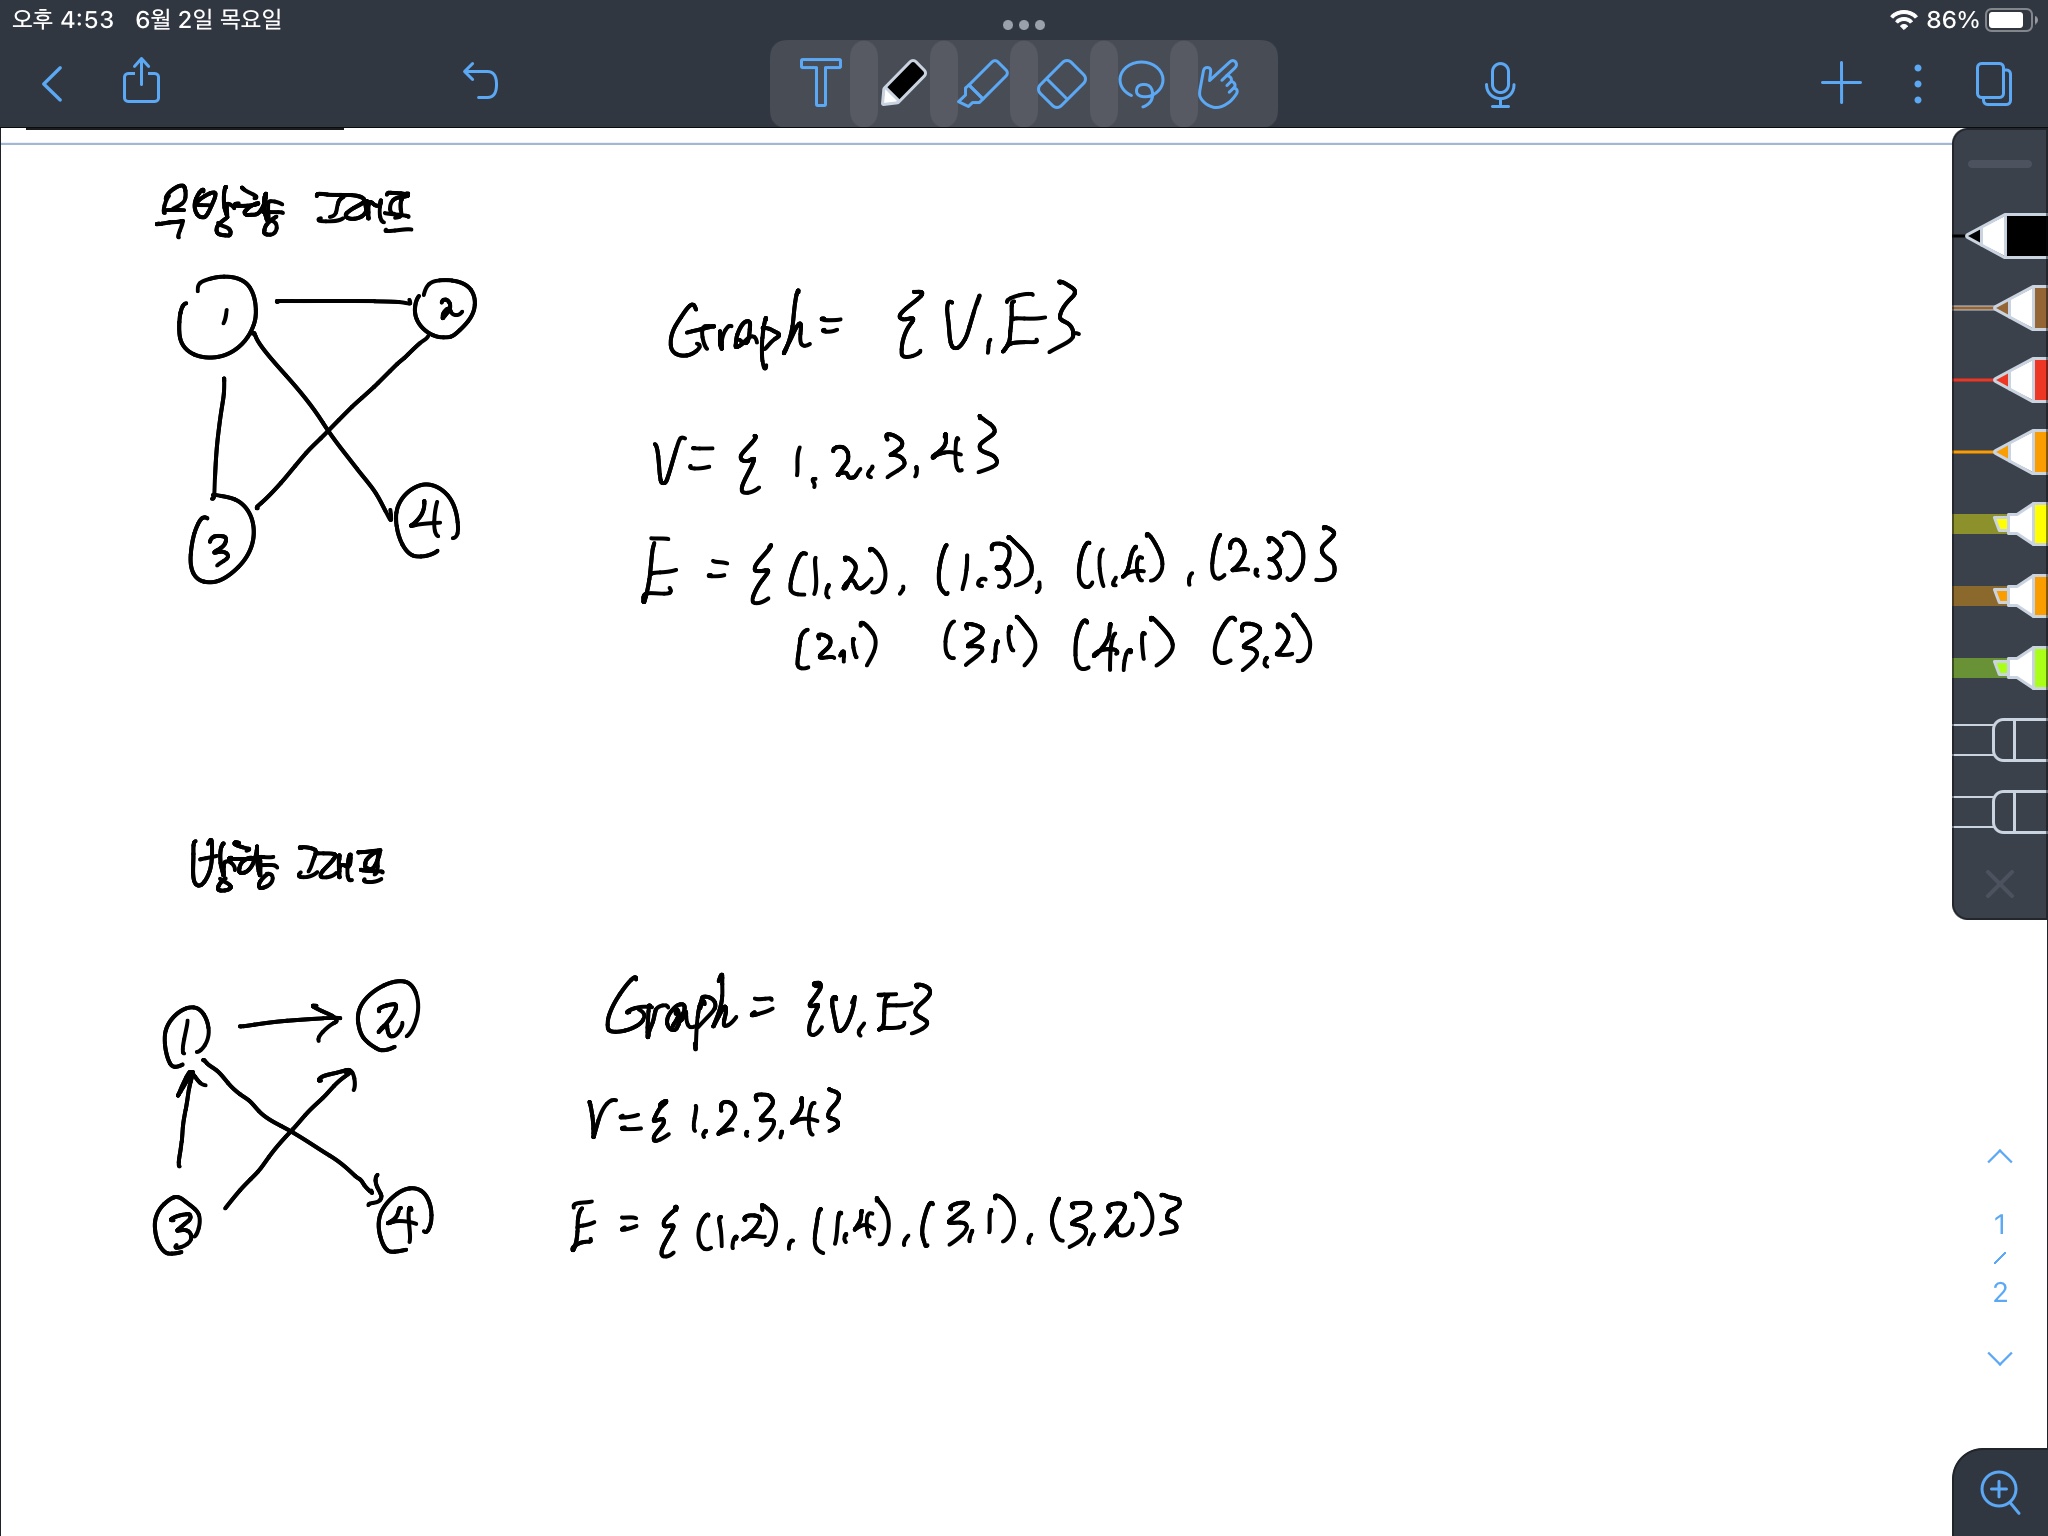 오후 4:53 6월 2일 목요일
86%
T
무방향 그래프
1 2
Graph = {V, E}
V = { 1, 2, 3, 4 }
3 4
E = {(1,2), (1,3), (1,4), (2,3)}
(2,1) (3,1) (4,1) (3,2)
방향 그래프
1 2
Graph = {V, E}
V = { 1, 2, 3, 4 }
3 4
E = { (1,2), (1,4), (3,1), (3,2) }
1
/
2